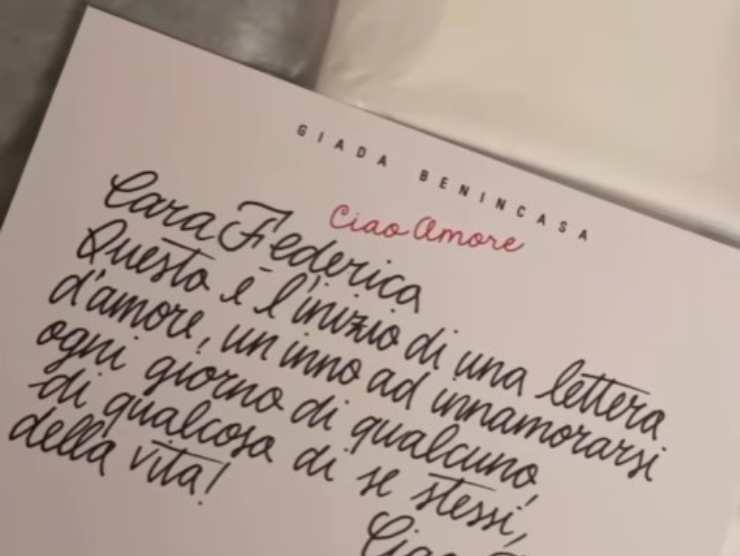 GIADA BENINCASA
Ciao Amore
Cara Federica
Questa è l'inizio di una lettera
d'amore, un inno ad innamorarsi
ogni giorno di qualcuno,
di qualcosa di se stessi,
della vita!